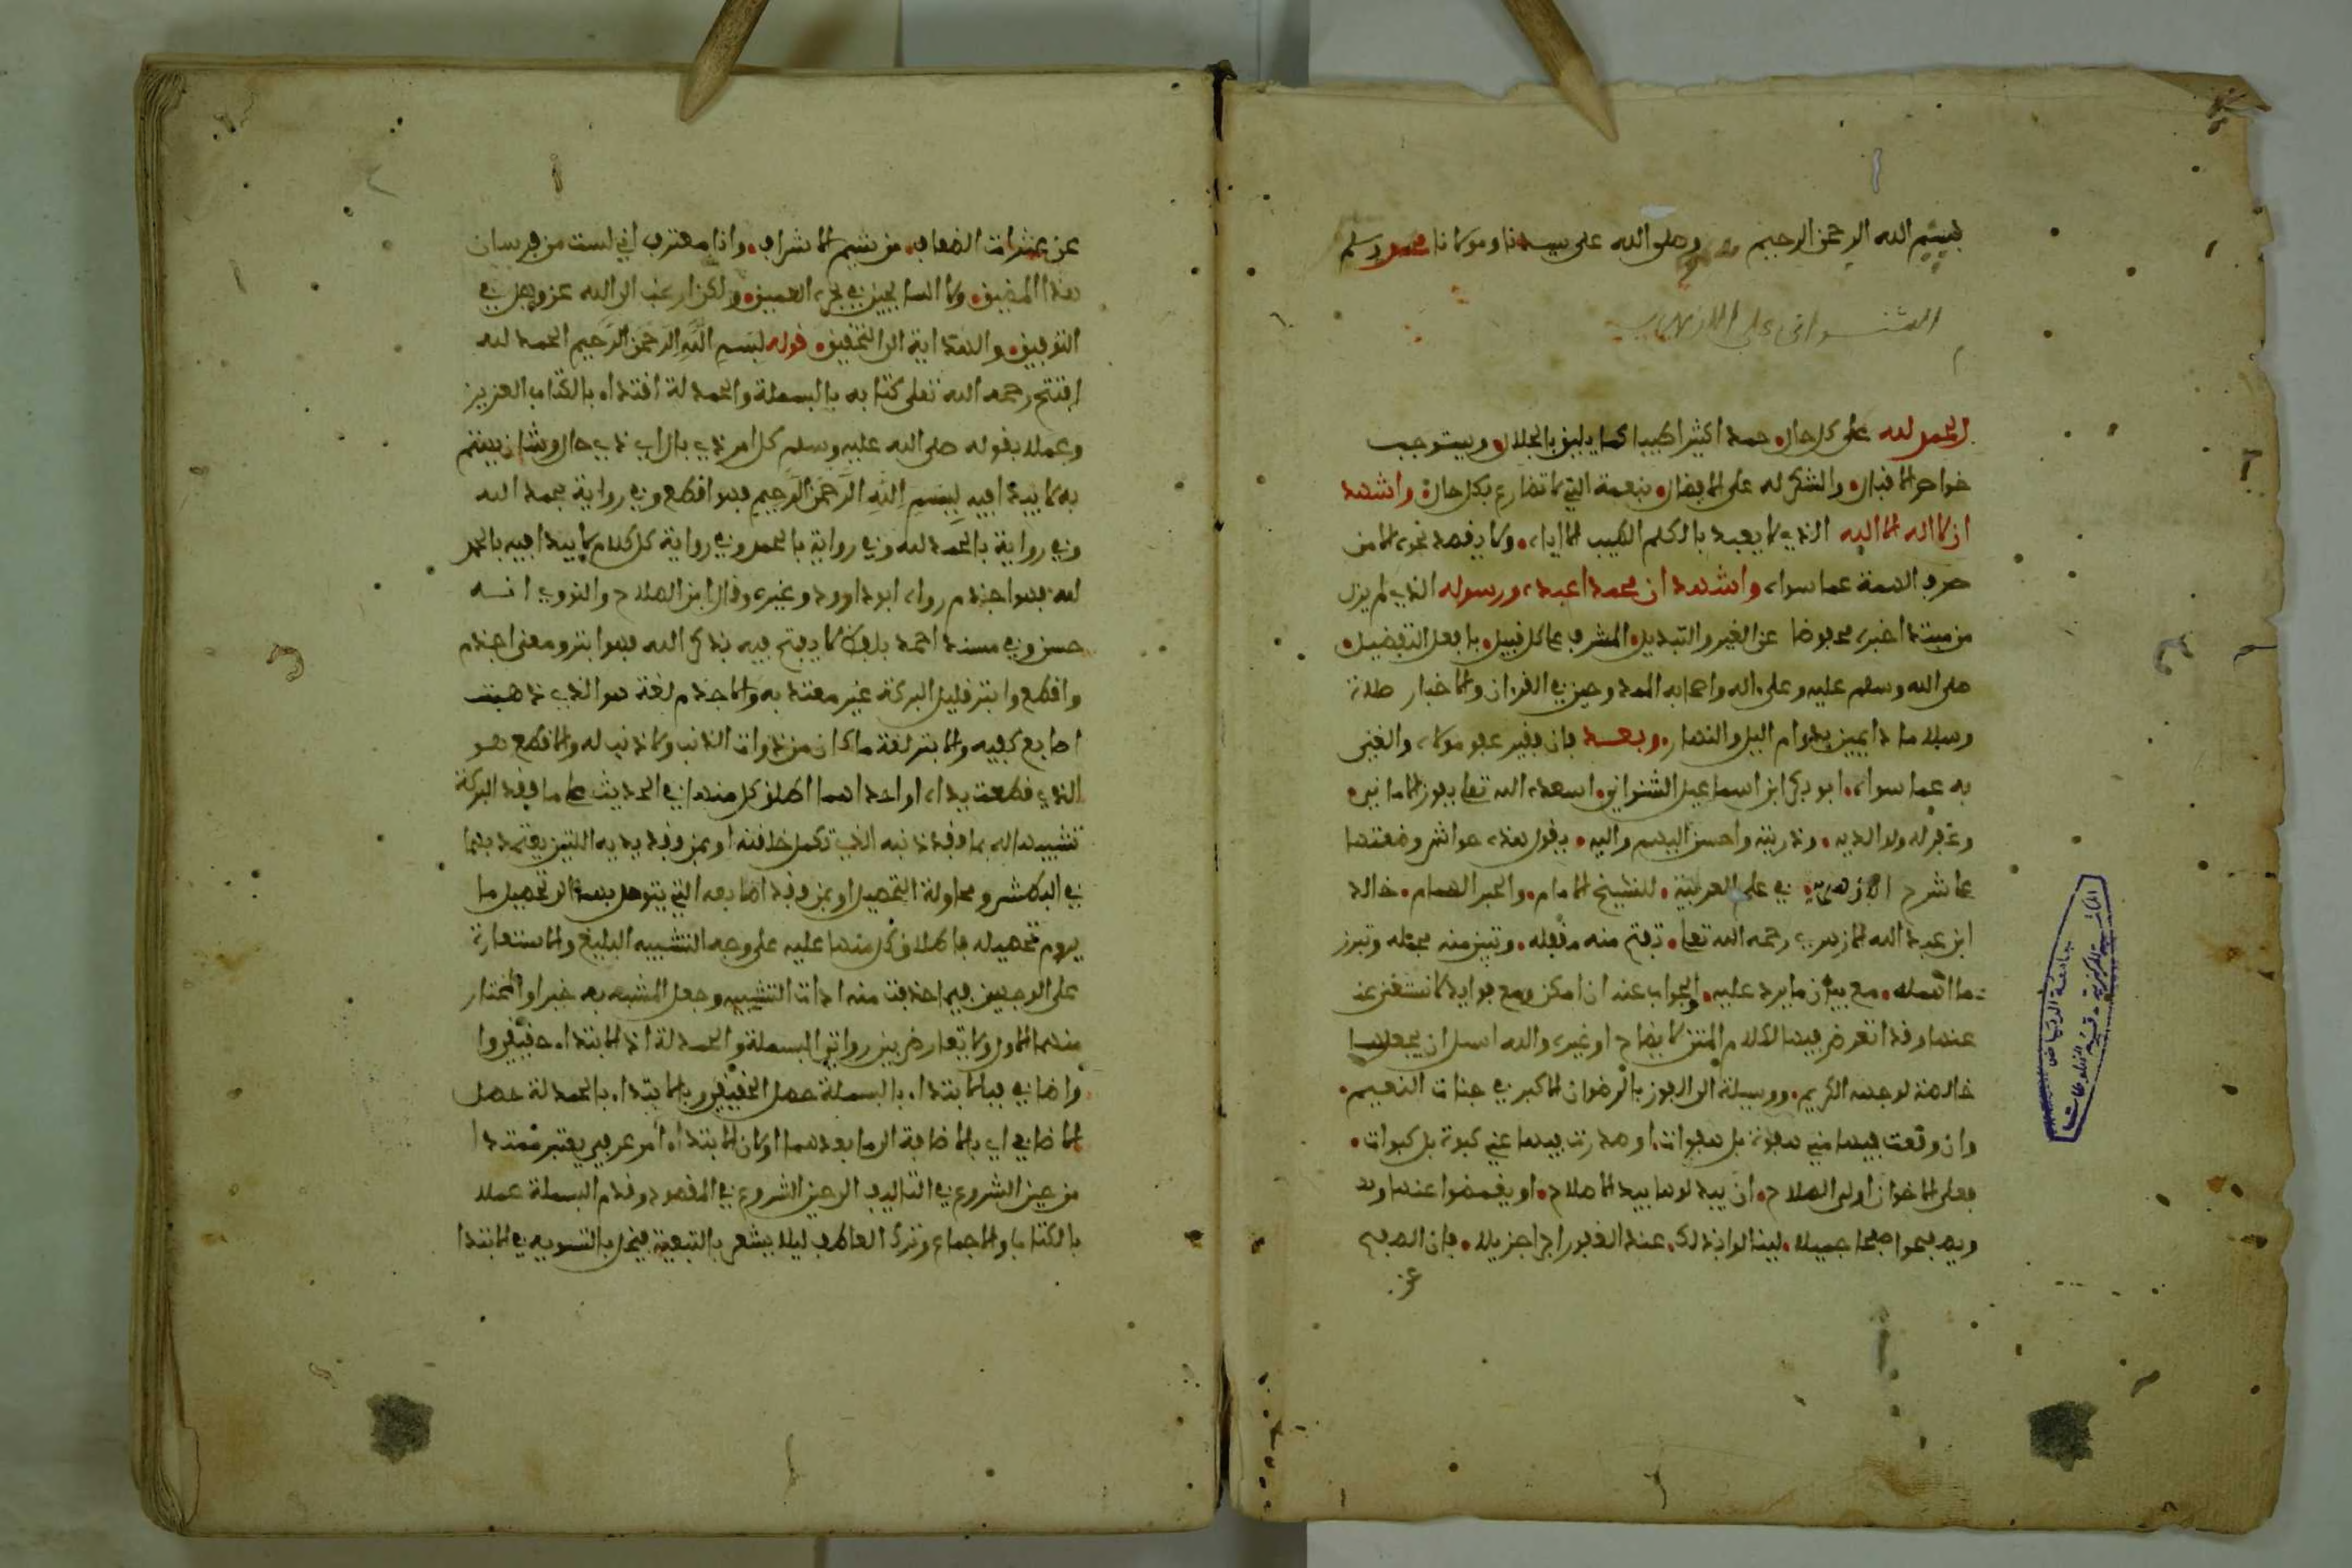 بسم الله الرحمن الرحيم وصلى الله على سيدنا ومولانا محمد وسلم
الشنوانى على الازهرية
الحمد لله على كل حال حمدا كثيرا طيبا كما يليق بالجلال ويستوجب
خواص الاقبال والشكر له على الافضال بنعمه التي لا تضارع بكل حال واشهد
ان لا اله الا الله الذي لا يعبد بالكلم الطيب الا اياه ولا يقصد نحوه الا من
صرف الهمة عما سواه واشهد ان محمدا عبده ورسوله الذي لم يزل
من مبتدا خبره محفوظا عن الغير والتبديل المشرف على كل قبيل بافعل التفضيل
صلى الله وسلم عليه وعلى اله واصحابه الممدوحين في القران والاخبار صلاة
وسلاما دايمين بدوام اليل والنهار وبعد فان فقير عفو مولاه والغني
به عما سواه ابو بكر ابن اسماعيل الشنواني اسعده الله تعلى بفوز الامانيه
وغفر له ولوالديه وذريته واحسن اليهم واليه يقول هذه حواش وضعتها
على شرح الازهرية في علم العربية للشيخ الامام والحبر الهمام خالد
ابن عبد الله الازهري رحمه الله تعلى تفتح منه مقفله وتبين منه مجمله وتبرز
ما اهمله مع بيان ما يرد عليه والجواب عنه ان امكن ومع فوايد لا تستغنى عن
عندها وقد اتعرض فيها لكلام المتن لايضاح او غيره والله اسل ان يجعلها
خالصة لوجهه الكريم ووسيلة الى الفوز بالرضوان الاكبر في جنات النعيم
وان وقعت فيها مني هفوة بل هفوات او صدرت فيها عني كبوة بل كبوات
فعلى الاخوان اولى الصلاح ان يبدلوها بيد الاصلاح او يغمضوا عنها
ويصفحوا صفحا جميلا لينالوا بذلك عند الغفور اجرا جزيلا فان الصفح
عن
عن عثرات الضعاف من شيم الاشراف وانا معترف اني لست من فرسان
هذا المضيق ولا السابحين في بحره العميق ولكن ارغب الى الله عز وجل في
التوفيق والهداية الى التحقيق قوله بسم الله الرحمن الرحيم الحمد لله
افتتح رحمه الله تعلى كتابه بالبسملة والحمدلة اقتداء بالكتاب العزيز
وعملا بقوله صلى الله عليه وسلم كل امر ذي بال اي ذي حال وشان يهتم
به لا يبدا فيه ببسم الله الرحمن الرحيم فهو اقطع وفي رواية بحمد الله
وفي رواية بالحمد لله وفي رواية بالحمد وفي رواية كل كلام لا يبدا فيه بالحمد
لله فهو اجذم رواه ابو داوود وغيره وقال ابن الصلاح والنووي انه
حسن وفي مسند احمد بلفظ لا يفتح فيه بذكر الله فهو ابتر ومعنى اجذم
واقطع وابتر قليل البركة غير معتد به والاجذم لغة هو الذي ذهبت
اصابع كفيه والابتر لغة ما كان من ذوات الذنب ولا ذنب له والاقطع هو
الذي قطعت يداه او احداهما اطلق كل منها في الحديث على ما فقد البركة
تشبيها له بما فقد ذنبه الذي تكمل خلقته او بمن فقد يديه اللتين يعتمد بهما
في البطش ومحاولة التحصيل او بمن فقد اصابعه التي يتوصل بها الى تحصيل ما
يروم تحصيله فاطلاق كل منها عليه على وجه التشبيه البليغ والاستعارة
على الوجهين فيما حذفت منه اداة التشبيه وجعل المشبه به خبرا والمختار
منهما الاول ولا تعارض بين روايتي البسملة والحمدلة اذ الابتداء حقيقي
واضافي فبالابتداء بالبسملة حصل الحقيقي وبالابتداء بالحمدلة حصل
الاضافي اي بالاضافة الى ما بعدهما او كان الابتداء امر عرفي يعتبر ممتدا
من حين الشروع في التاليف الى حين الشروع في المقصود وقدم البسملة عملا
بالكتاب والاجماع وترك العاطف ليلا يشعر بالتبعية فيخل بالتسوية في الابتدا